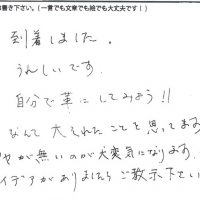 書き下さい。(一言でも文章でも絵でも大丈夫です!)
到着しました。
うれしいです。
自分で革にしてみよう!!
なんて大それたことを思ってます
が無いのが大変気になります。
イデアがありましたらご教示下さい